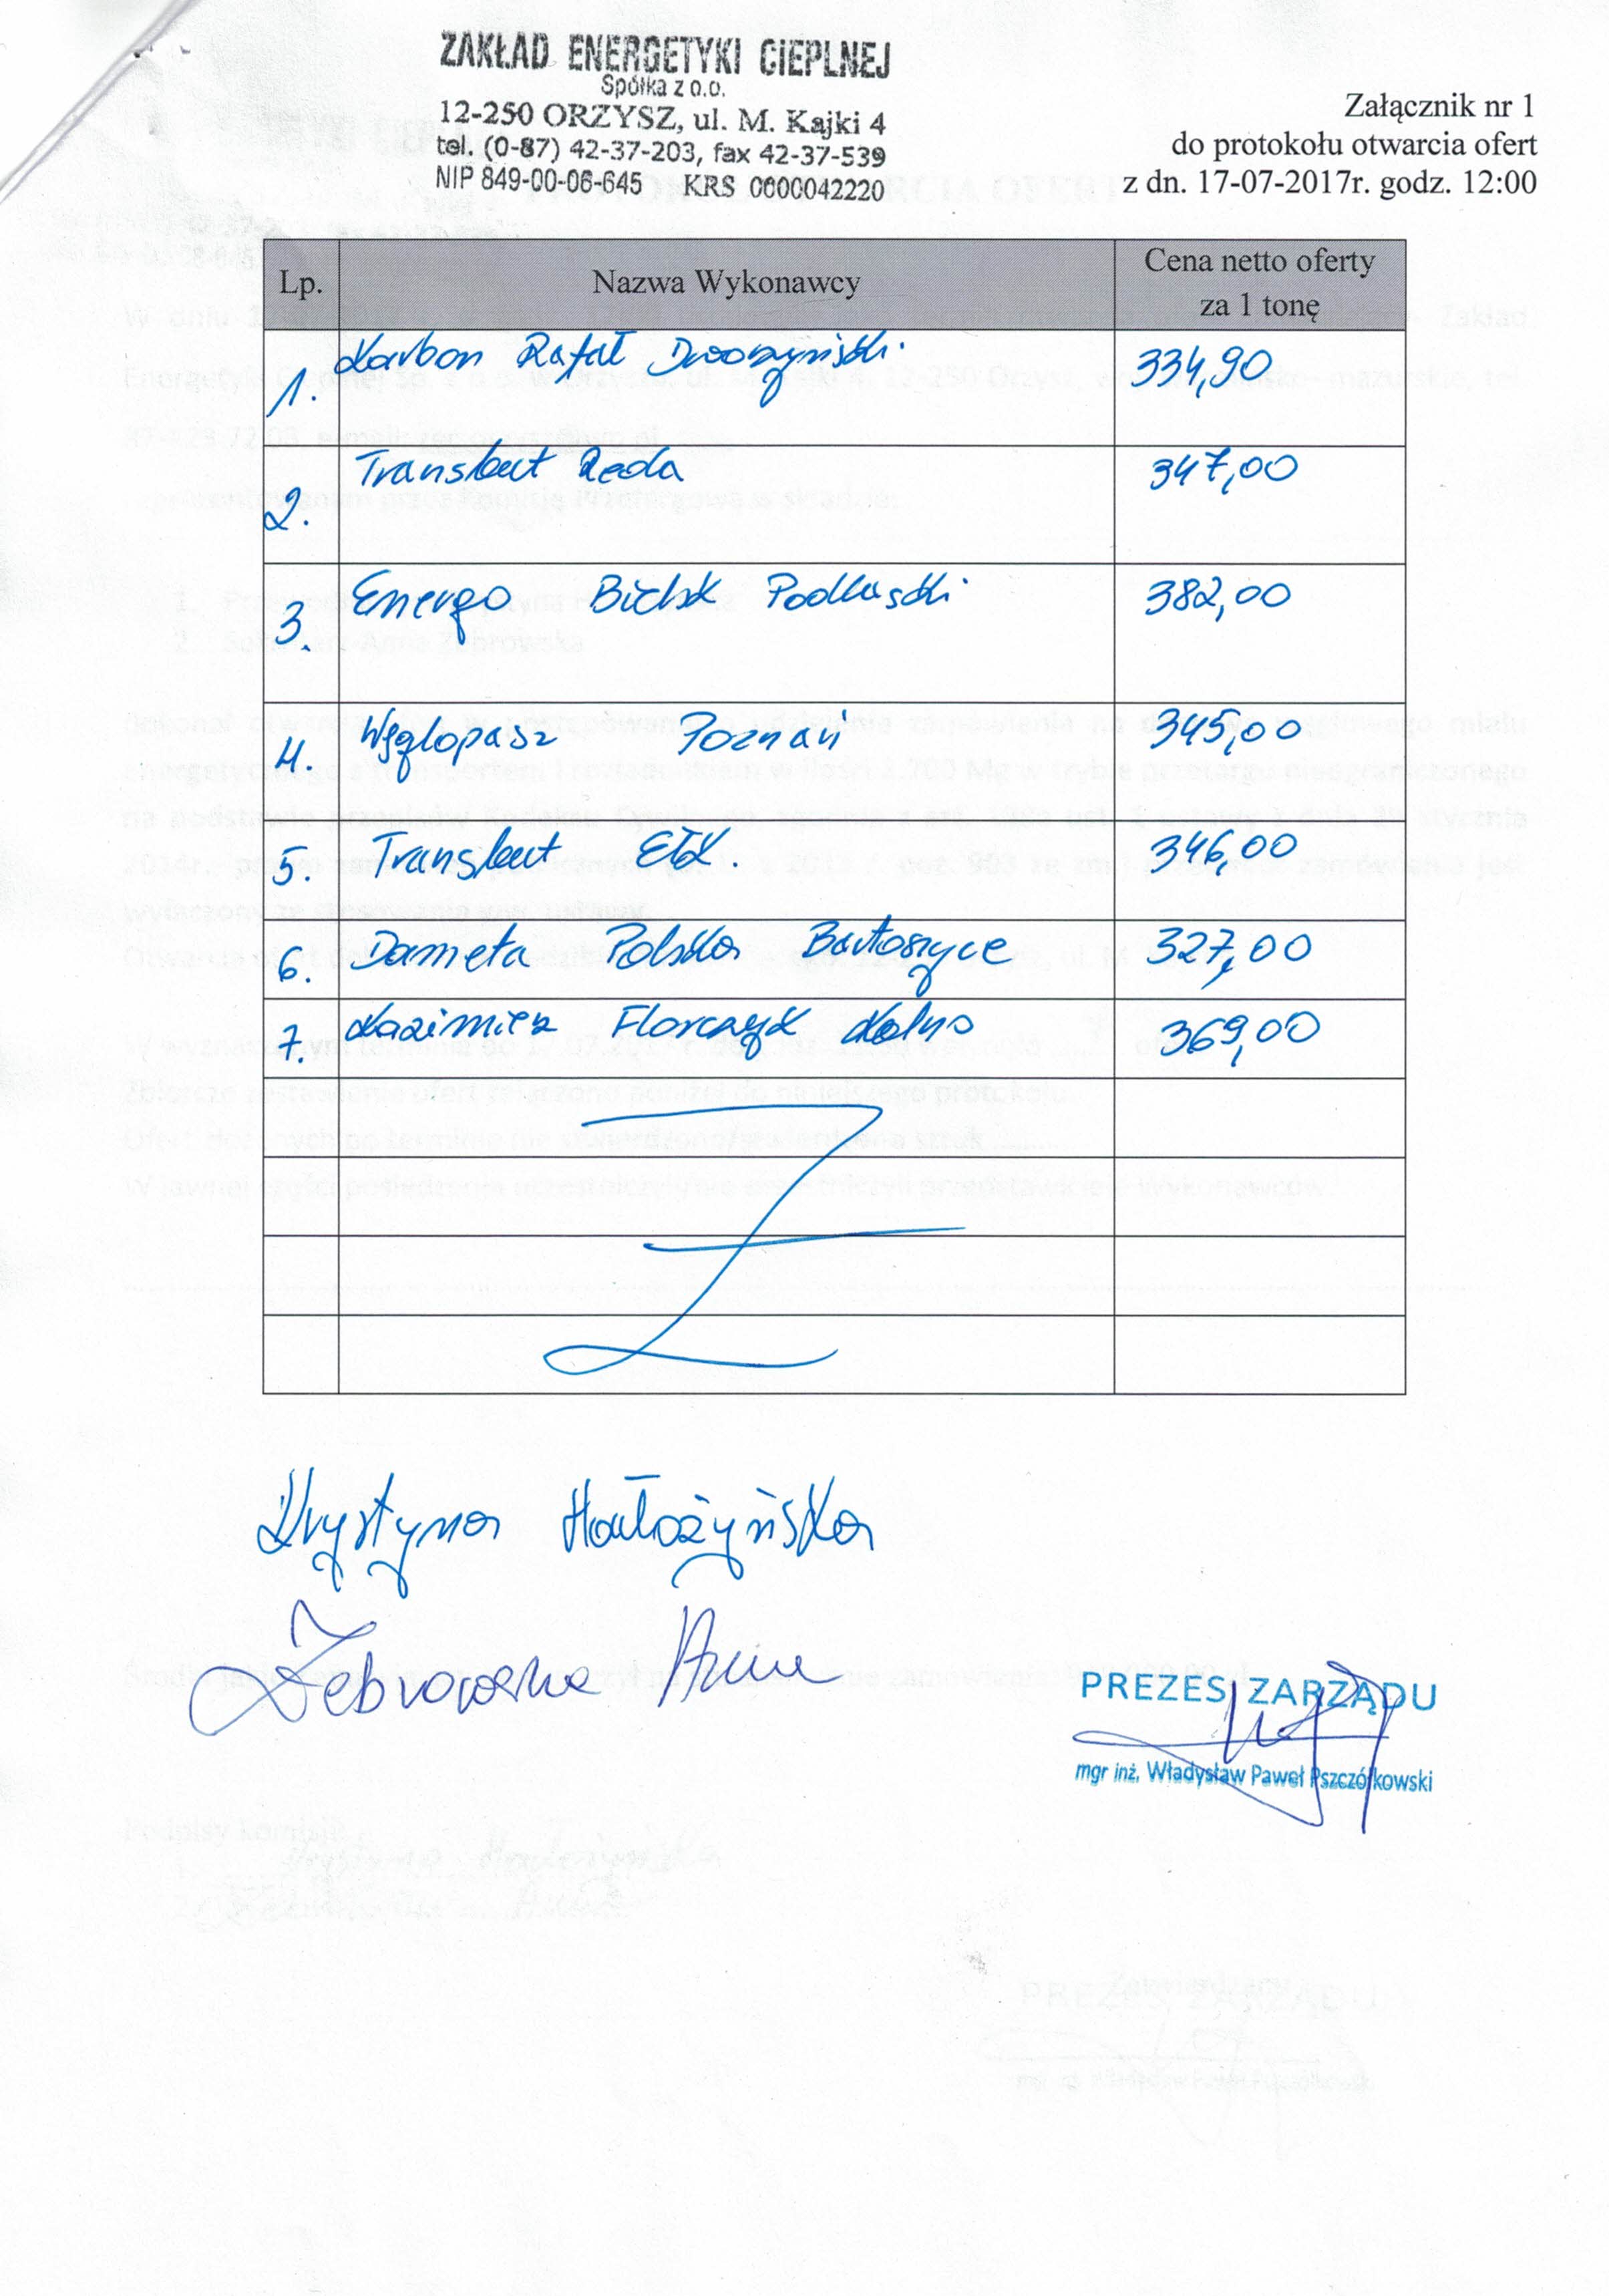 ZAKŁAD ENERGETYKI CIEPLNEJ
Spółka z o.o.
12-250 ORZYSZ, ul. M. Kajki 4
tel. (0-87) 42-37-203, fax 42-37-539
NIP 849-00-06-645 KRS 0000042220
Załącznik nr 1
do protokołu otwarcia ofert
z dn. 17-07-2017r. godz. 12:00
Lp. Nazwa Wykonawcy Cena netto oferty za 1 tonę
1. Karbon Rafał Dworzyński 334,90
2. Transbut Reda 347,00
3. Energo Bielsk Podlaski 382,00
4. Węglopasz Poznań 345,00
5. Transbut Ełk. 346,00
6. Dameta Polska Bartoszyce 327,00
7. Kazimierz Florczyk Kolno 369,00
Krystyna Hałożyńska
Żebrowska Anna
PREZES ZARZĄDU
mgr inż. Władysław Paweł Pszczółkowski